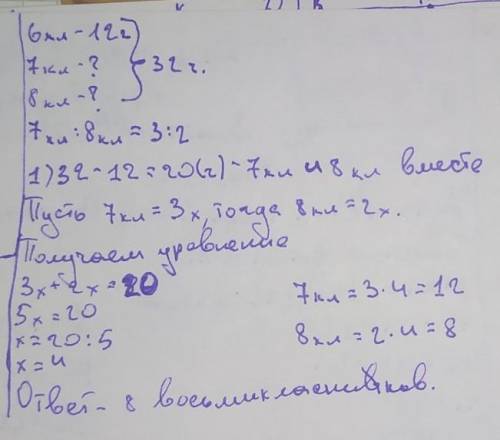 6кл - 12ч
7кл - ?
8кл - ?
} 32ч.
7кл : 8кл = 3:2
1) 32 - 12 = 20(ч) - 7кл и 8кл вместе
Пусть 7кл = 3х, тогда 8кл = 2х.
Получаем уравнение
3х + 2х = 20
5х = 20
х = 20 : 5
х = 4
7кл = 3 · 4 = 12
8кл = 2 · 4 = 8
Ответ - 8 восьмикласников.